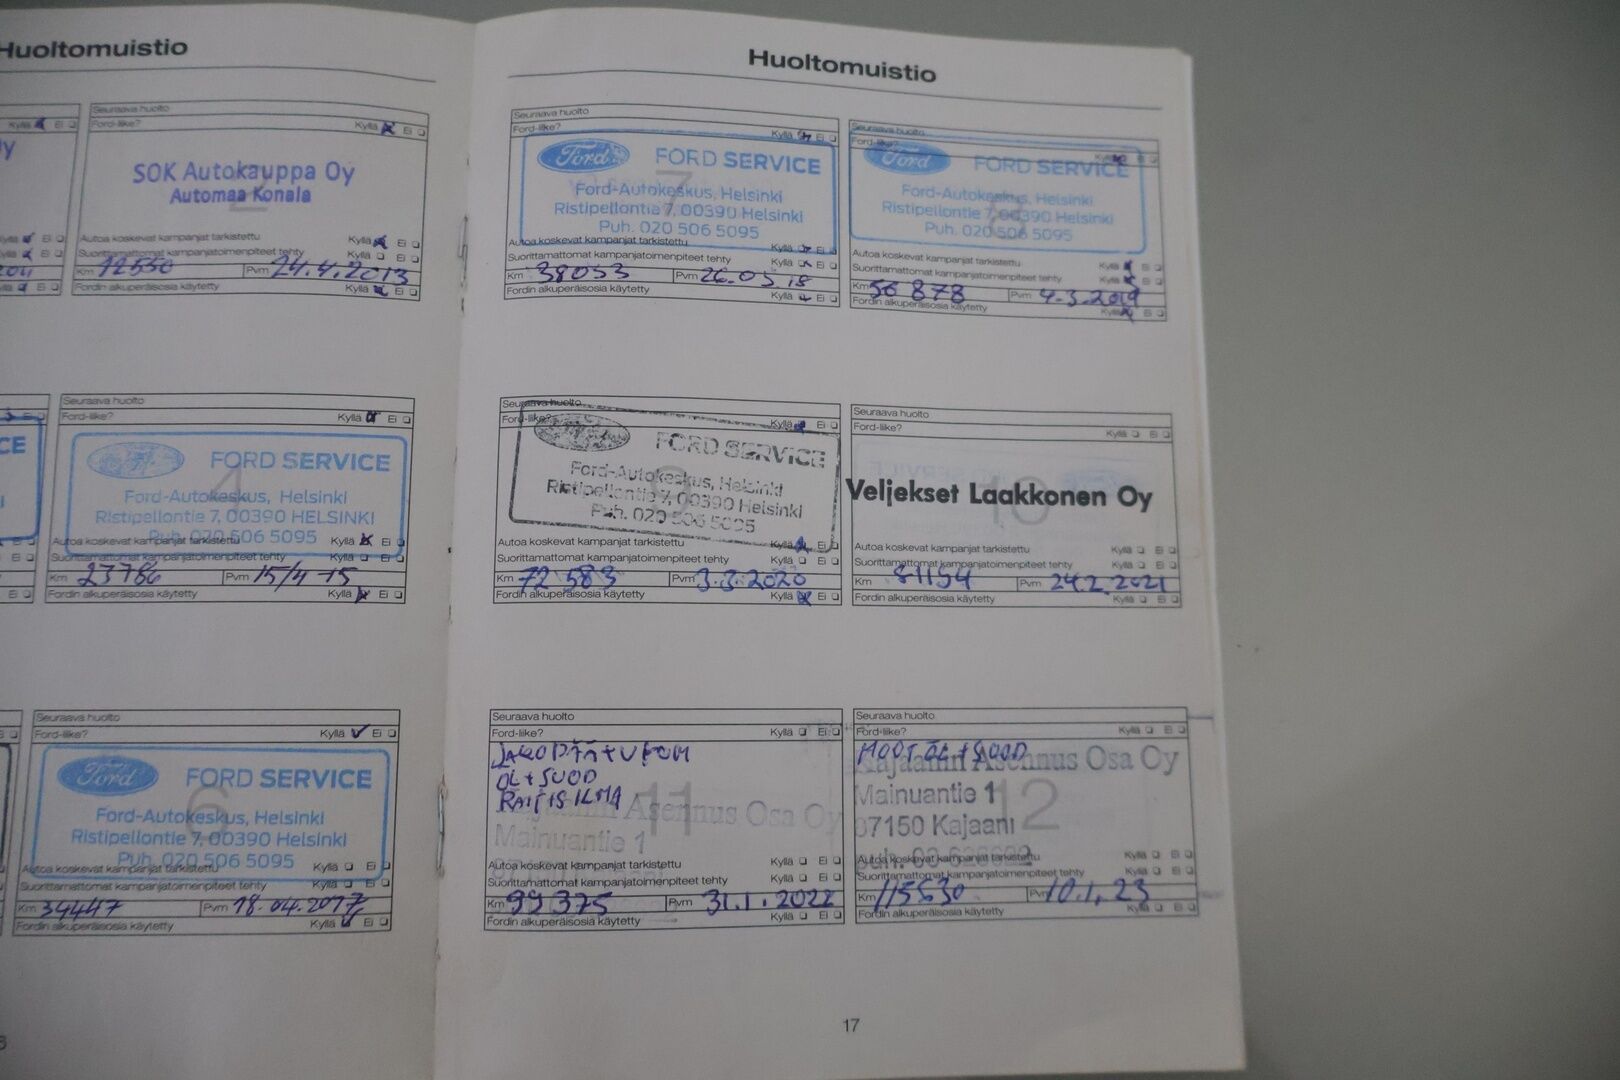 Huoltomuistio
Kyllä Ei
y
Kyllä Ei
Kyllä Ei
2011
Kyllä Ei
Seuraava huolto
Ford-liike? Kyllä Ei
SOK Autokauppa Oy
Automaa Konala
2
Autoa koskevat kampanjat tarkistettu Kyllä Ei
Suorittamattomat kampanjatoimenpiteet tehty Kyllä Ei
Km 12550 Pvm 24.4.2013
Fordin alkuperäisosia käytetty Kyllä Ei
Ei
CE
Ei
Ei
Ei
Seuraava huolto
Ford-liike? Kyllä Ei
Ford FORD SERVICE
4
Ford-Autokeskus, Helsinki
Ristipellontie 7, 00390 HELSINKI
Puh. 020 506 5095
Autoa koskevat kampanjat tarkistettu Kyllä Ei
Suorittamattomat kampanjatoimenpiteet tehty Kyllä Ei
Km 23786 Pvm 15/4 -15
Fordin alkuperäisosia käytetty Kyllä Ei
Seuraava huolto
Ford-liike? Kyllä Ei
Ford FORD SERVICE
6
Ford-Autokeskus, Helsinki
Ristipellontie 7, 00390 Helsinki
Puh. 020 506 5095
Autoa koskevat kampanjat tarkistettu Kyllä Ei
Suorittamattomat kampanjatoimenpiteet tehty Kyllä Ei
Km 34447 Pvm 18.04.2017
Fordin alkuperäisosia käytetty Kyllä Ei
Huoltomuistio
Seuraava huolto
Ford-liike? Kyllä Ei
Ford FORD SERVICE
7
Ford-Autokeskus, Helsinki
Ristipellontie 7, 00390 Helsinki
Puh. 020 506 5095
Autoa koskevat kampanjat tarkistettu Kyllä Ei
Suorittamattomat kampanjatoimenpiteet tehty Kyllä Ei
Km 38053 Pvm 26.05.18
Fordin alkuperäisosia käytetty Kyllä Ei
Seuraava huolto
Ford-liike? Kyllä Ei
Ford FORD SERVICE
8
Ford-Autokeskus, Helsinki
Ristipellontie 7, 00390 Helsinki
Puh. 020 506 5095
Autoa koskevat kampanjat tarkistettu Kyllä Ei
Suorittamattomat kampanjatoimenpiteet tehty Kyllä Ei
Km 56 878 Pvm 4.3.2019
Fordin alkuperäisosia käytetty Kyllä Ei
Seuraava huolto
Ford-liike? Kyllä Ei
FORD SERVICE
9
Ford-Autokeskus, Helsinki
Ristipellontie 7, 00390 Helsinki
Puh. 020 506 5095
Autoa koskevat kampanjat tarkistettu Kyllä Ei
Suorittamattomat kampanjatoimenpiteet tehty Kyllä Ei
Km 72 583 Pvm 3.3.2020
Fordin alkuperäisosia käytetty Kyllä Ei
Seuraava huolto
Ford-liike? Kyllä Ei
Veljekset Laakkonen Oy
10
Autoa koskevat kampanjat tarkistettu Kyllä Ei
Suorittamattomat kampanjatoimenpiteet tehty Kyllä Ei
Km 81154 Pvm 24.2.2021
Fordin alkuperäisosia käytetty Kyllä Ei
Seuraava huolto
Ford-liike? Kyllä Ei
ÖL + SUOD
RAITIS ILMA
11
Kajaanin Asennus Osa Oy
Mainuantie 1
Autoa koskevat kampanjat tarkistettu Kyllä Ei
Suorittamattomat kampanjatoimenpiteet tehty Kyllä Ei
Km 99375 Pvm 31.1.2022
Fordin alkuperäisosia käytetty Kyllä Ei
Seuraava huolto
Ford-liike? Kyllä Ei
MOOT.ÖL + SUOD
Kajaanin Asennus Osa Oy
Mainuantie 1
12
87150 Kajaani
Autoa koskevat kampanjat tarkistettu Kyllä Ei
Suorittamattomat kampanjatoimenpiteet tehty Kyllä Ei
Km 115530 Pvm 10.1.23
Fordin alkuperäisosia käytetty Kyllä Ei
17